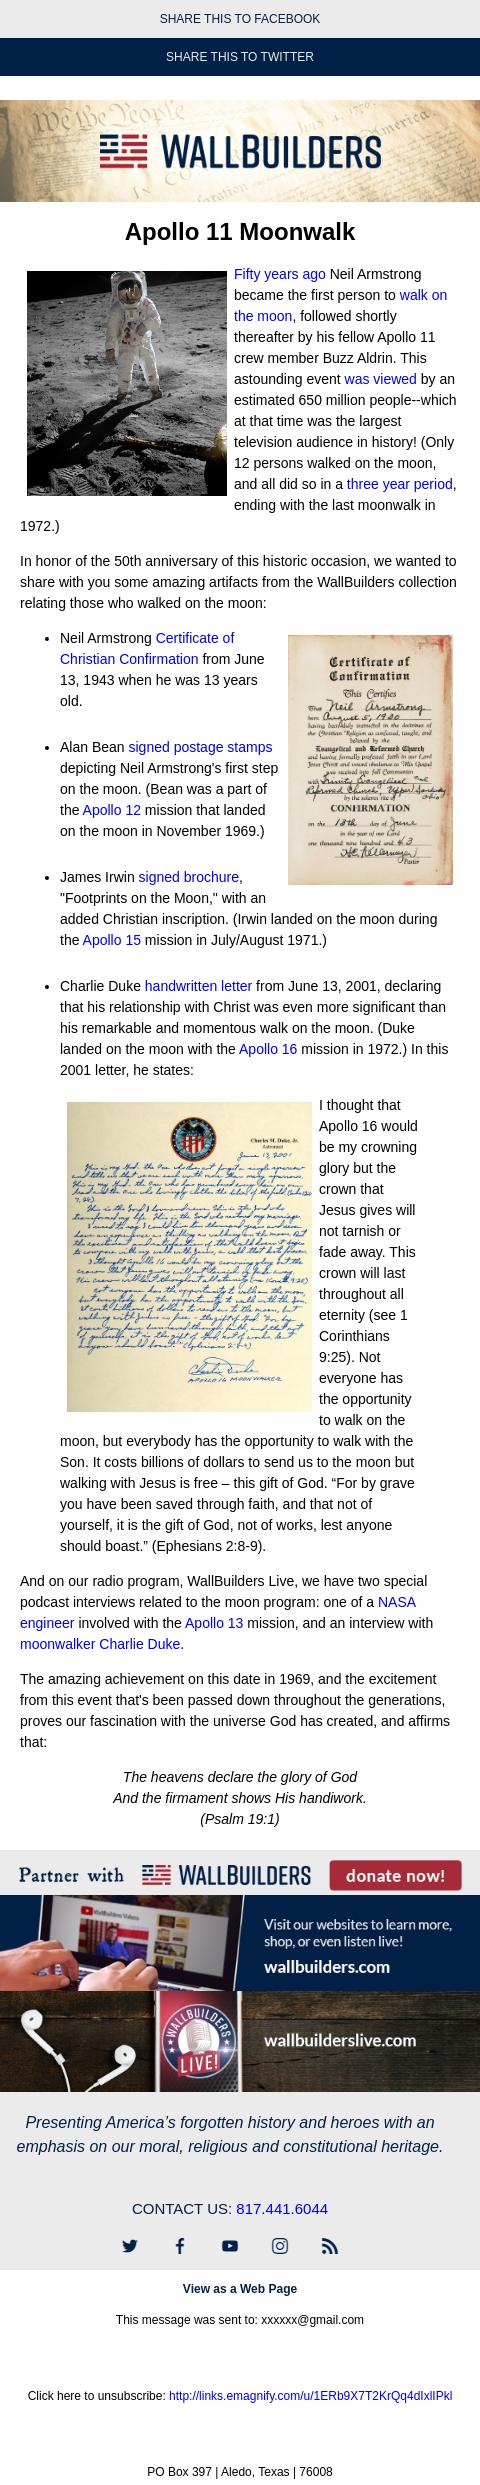 SHARE THIS TO FACEBOOK
SHARE THIS TO TWITTER
We the People
WALLBUILDERS
Apollo 11 Moonwalk
Fifty years ago Neil Armstrong
became the first person to walk on
the moon, followed shortly
thereafter by his fellow Apollo 11
crew member Buzz Aldrin. This
astounding event was viewed by an
estimated 650 million people--which
at that time was the largest
television audience in history! (Only
12 persons walked on the moon,
and all did so in a three year period,
ending with the last moonwalk in
1972.)
In honor of the 50th anniversary of this historic occasion, we wanted to
share with you some amazing artifacts from the WallBuilders collection
relating those who walked on the moon:
• Neil Armstrong Certificate of
Christian Confirmation from June
13, 1943 when he was 13 years
old.
• Alan Bean signed postage stamps
depicting Neil Armstrong's first step
on the moon. (Bean was a part of
the Apollo 12 mission that landed
on the moon in November 1969.)
• James Irwin signed brochure,
"Footprints on the Moon," with an
added Christian inscription. (Irwin landed on the moon during
the Apollo 15 mission in July/August 1971.)
Certificate of
Confirmation
This Certifies
That Neil Armstrong
born August 5, 1930
having been duly instructed in the doctrines of
the Christian Religion as confessed, taught, and
believed by the
Evangelical and Reformed Church
and having formally professed faith in our Lord
Jesus Christ and vowed obedience to His Gospel
was received into full Communion
with Trinity Evangelical and
Reformed Church, Upper Sandusky
Ohio
by the solemn rite of
CONFIRMATION
on the 13th day of June
in the year of our Lord
one thousand nine hundred and 43
Pastor
• Charlie Duke handwritten letter from June 13, 2001, declaring
that his relationship with Christ was even more significant than
his remarkable and momentous walk on the moon. (Duke
landed on the moon with the Apollo 16 mission in 1972.) In this
2001 letter, he states:
Charles M. Duke, Jr.
Astronaut
June 13, 2001
Charlie Duke
APOLLO 16 MOONWALKER
I thought that
Apollo 16 would
be my crowning
glory but the
crown that
Jesus gives will
not tarnish or
fade away. This
crown will last
throughout all
eternity (see 1
Corinthians
9:25). Not
everyone has
the opportunity
to walk on the
moon, but everybody has the opportunity to walk with the
Son. It costs billions of dollars to send us to the moon but
walking with Jesus is free – this gift of God. “For by grave
you have been saved through faith, and that not of
yourself, it is the gift of God, not of works, lest anyone
should boast.” (Ephesians 2:8-9).
And on our radio program, WallBuilders Live, we have two special
podcast interviews related to the moon program: one of a NASA
engineer involved with the Apollo 13 mission, and an interview with
moonwalker Charlie Duke.
The amazing achievement on this date in 1969, and the excitement
from this event that's been passed down throughout the generations,
proves our fascination with the universe God has created, and affirms
that:
The heavens declare the glory of God
And the firmament shows His handiwork.
(Psalm 19:1)
Partner with WALLBUILDERS donate now!
Visit our websites to learn more,
shop, or even listen live!
wallbuilders.com
WALLBUILDERS
LIVE!
wallbuilderslive.com
Presenting America’s forgotten history and heroes with an
emphasis on our moral, religious and constitutional heritage.
CONTACT US: 817.441.6044
View as a Web Page
This message was sent to: xxxxxx@gmail.com
Click here to unsubscribe: http://links.emagnify.com/u/1ERb9X7T2KrQq4dIxlIPkl
PO Box 397 | Aledo, Texas | 76008